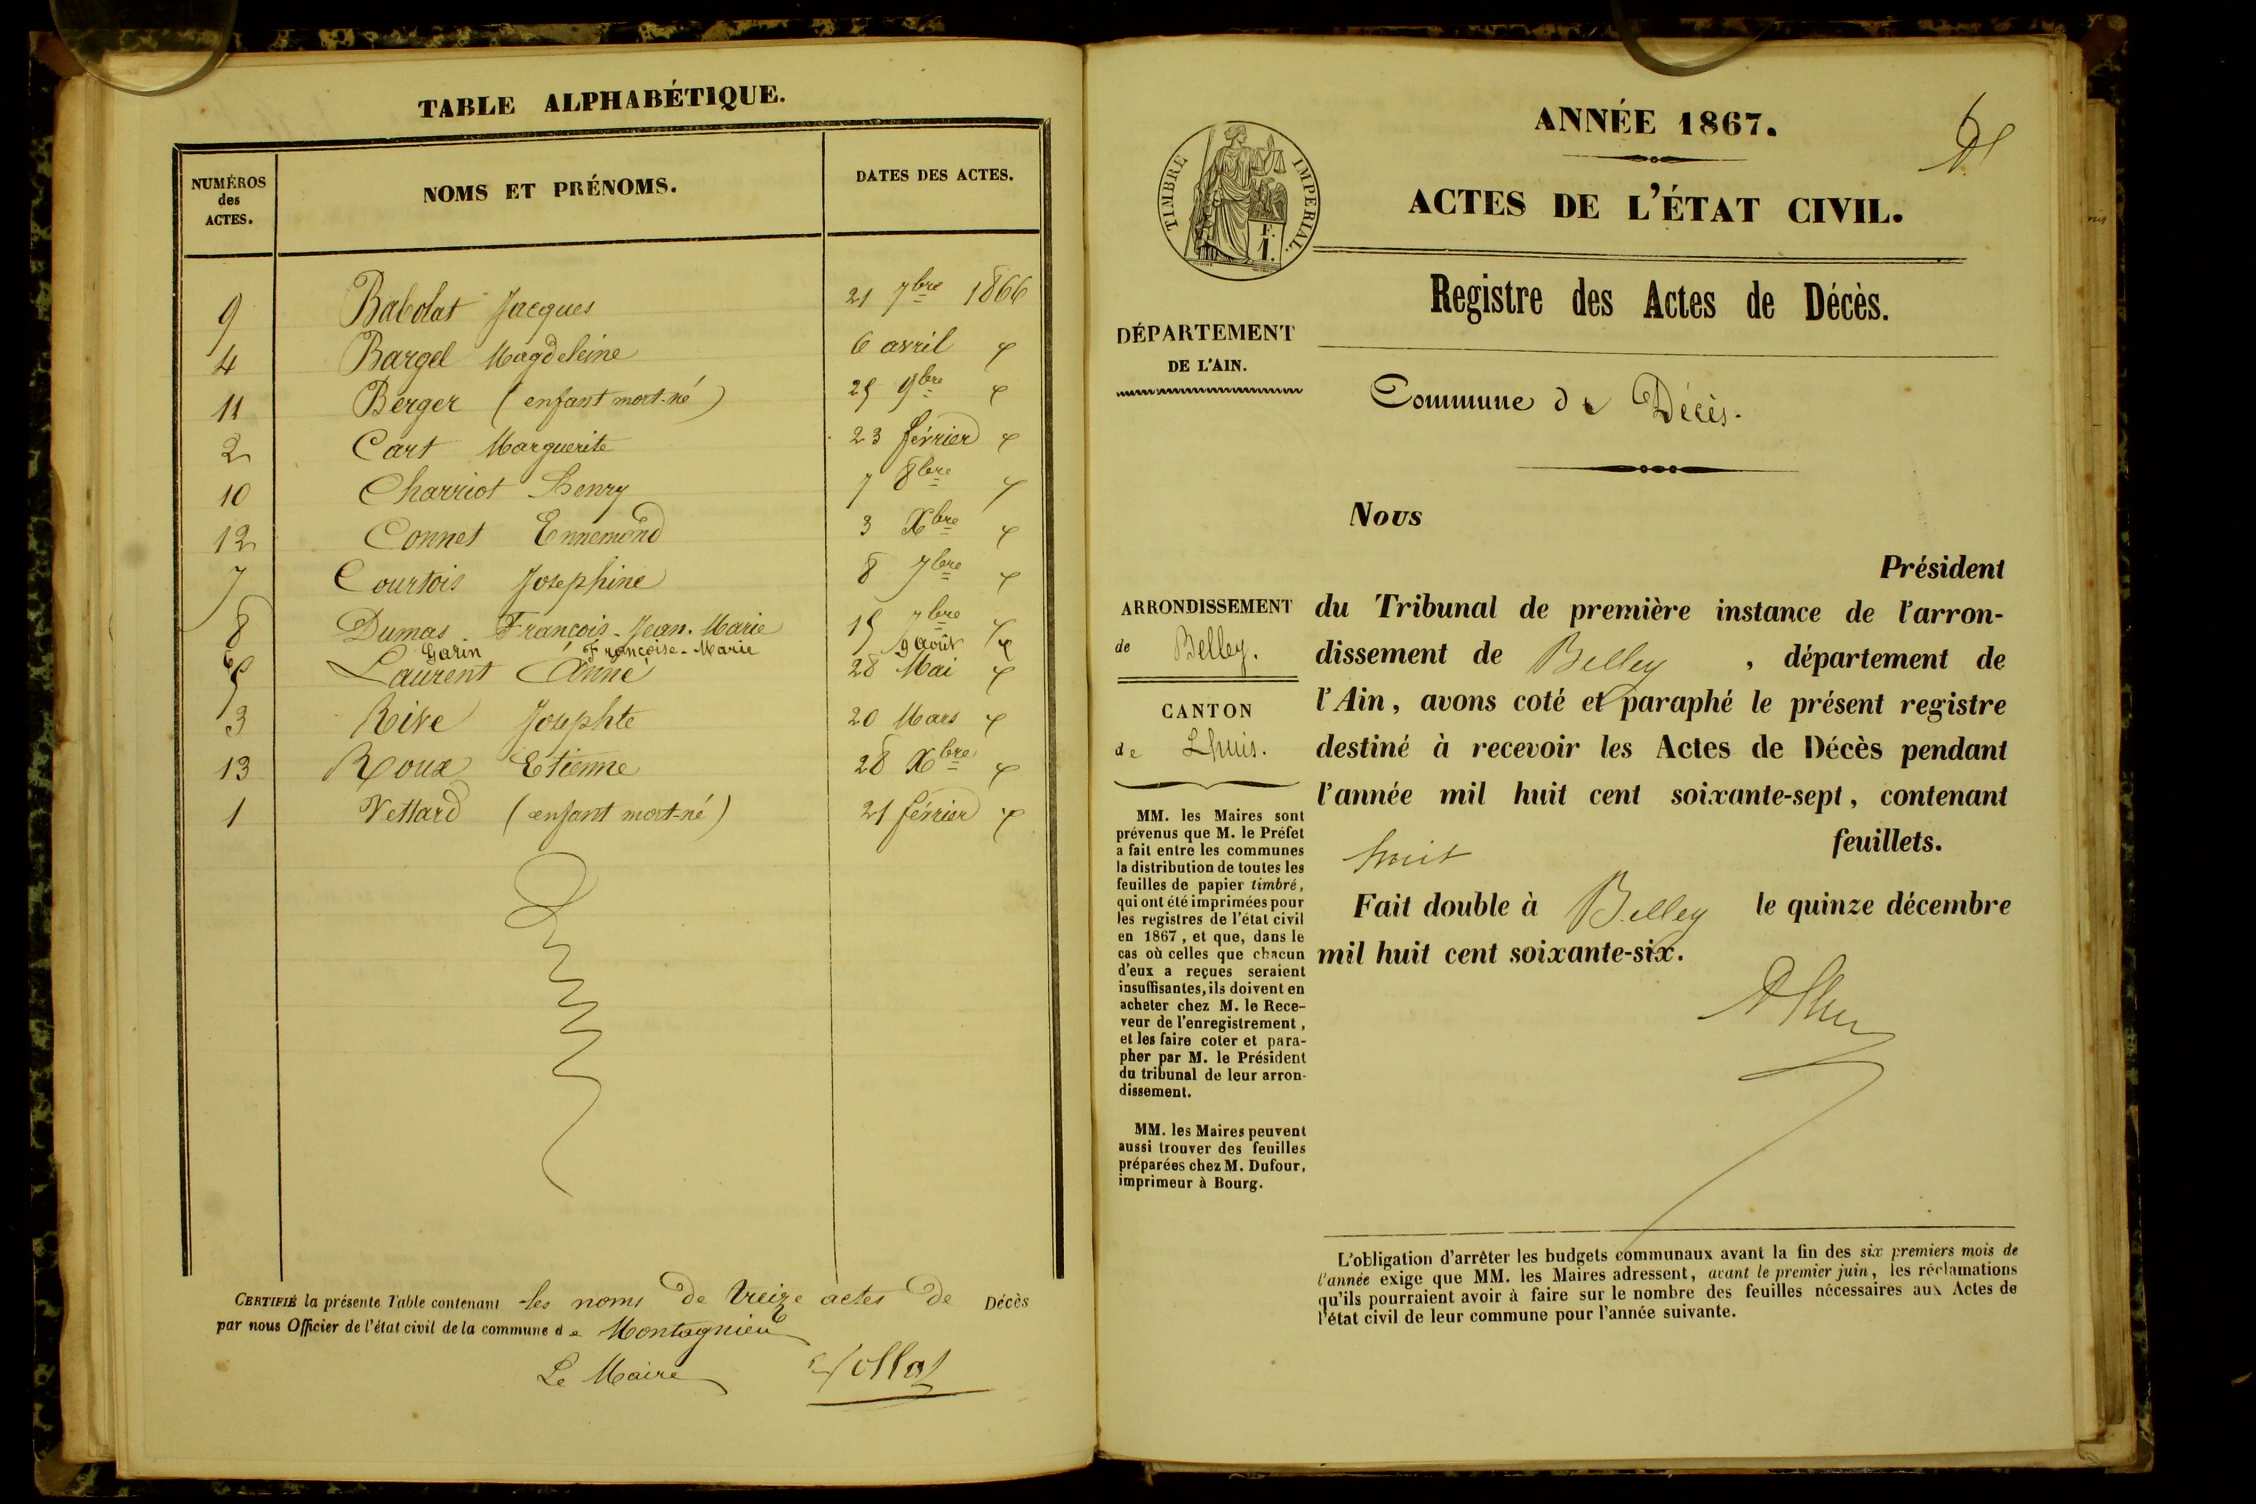 TABLE ALPHABÉTIQUE.
NUMÉROS
des
ACTES.
NOMS ET PRÉNOMS.
DATES DES ACTES.
9 Babolat Jacques 21 7bre 1866
4 Bargel Magdeleine 6 avril "
11 Berger (enfant mort-né) 25 9bre "
2 Cart Marguerite 23 février "
10 Charriot Henry 7 8bre "
12 Connet Ennemond 3 Xbre "
7 Courtois Josephine 8 7bre "
8 Dumas François-Jean-Marie 15 7bre "
6 Garin Françoise-Marie 9 août "
5 Laurent Anne 28 Mai "
3 Rive Josephte 20 Mars "
13 Roux Etienne 28 Xbre "
1 Vettard (enfant mort-né) 21 février "
CERTIFIÉ la présente Table contenant les noms de treize actes de Décès
par nous Officier de l'état civil de la commune de Montagnieu
Le Maire
ANNÉE 1867.
ACTES DE L'ÉTAT CIVIL.
TIMBRE IMPERIAL.
F.
1.
Registre des Actes de Décès.
DÉPARTEMENT
DE L'AIN.
Commune de Décès.
Nous
Président
du Tribunal de première instance de l'arron-
dissement de Belley, département de
l'Ain, avons coté et paraphé le présent registre
destiné à recevoir les Actes de Décès pendant
l'année mil huit cent soixante-sept, contenant
huit feuillets.
Fait double à Belley le quinze décembre
mil huit cent soixante-six.
ARRONDISSEMENT
de Belley.
CANTON
de Lhuis.
MM. les Maires sont
prévenus que M. le Préfet
a fait entre les communes
la distribution de toutes les
feuilles de papier timbré,
qui ont été imprimées pour
les registres de l'état civil
en 1867, et que, dans le
cas où celles que chacun
d'eux a reçues seraient
insuffisantes, ils doivent en
acheter chez M. le Rece-
veur de l'enregistrement,
et les faire coter et para-
pher par M. le Président
du tribunal de leur arron-
dissement.
MM. les Maires peuvent
aussi trouver des feuilles
préparées chez M. Dufour,
imprimeur à Bourg.
L'obligation d'arrêter les budgets communaux avant la fin des six premiers mois de
l'année exige que MM. les Maires adressent, avant le premier juin, les réclamations
qu'ils pourraient avoir à faire sur le nombre des feuilles nécessaires aux Actes de
l'état civil de leur commune pour l'année suivante.